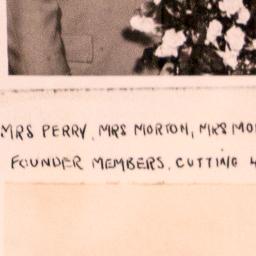 MRS PERRY, MRS MORTON, MRS MO
FOUNDER MEMBERS, CUTTING 4